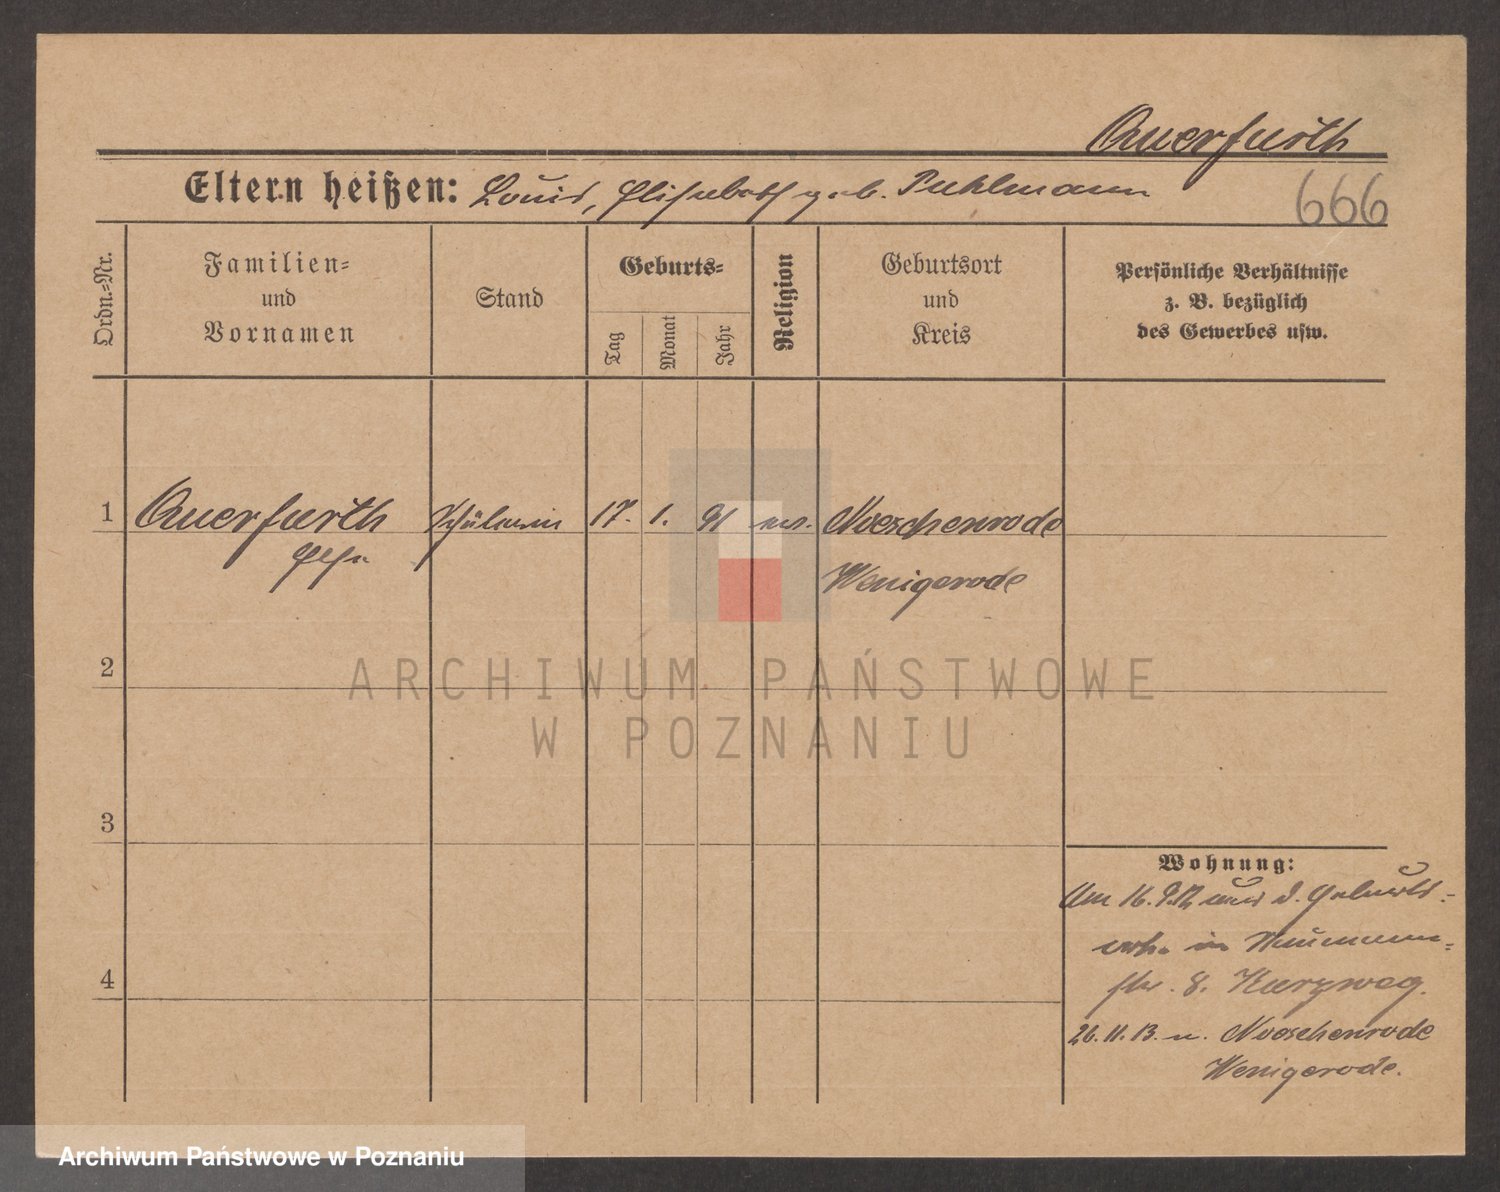 Auerfurth
Eltern heißen: Louis, Elisabeth geb. Puhlmann
666
Ordn.-Nr.
Familien-
und
Vornamen
Stand
Geburts-
Tag
Monat
Jahr
Religion
Geburtsort
und
Kreis
Persönliche Verhältnisse
z. B. bezüglich
des Gewerbes usw.
1 Auerfurth Schülerin 17. 1. 91 Noeschenrode
Else
Wenigerode
2
3
4
Wohnung:
Am 16. 9. 12 aus d. Geburts-
in Naumann-
str. 8. Kurzweg.
26. 11. 13. n. Noeschenrode
Wenigerode.
ARCHIWUM PAŃSTWOWE
W POZNANIU
Archiwum Państwowe w Poznaniu